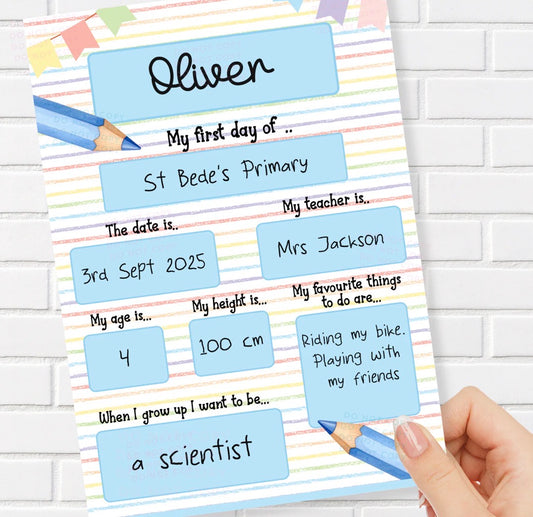 Oliver
My first day of ..
St Bede's Primary
The date is..
3rd Sept 2025
My teacher is..
Mrs Jackson
My age is...
4
My height is...
100 cm
My favourite things
to do are...
Riding my bike.
Playing with
my friends
When I grow up I want to be...
a scientist